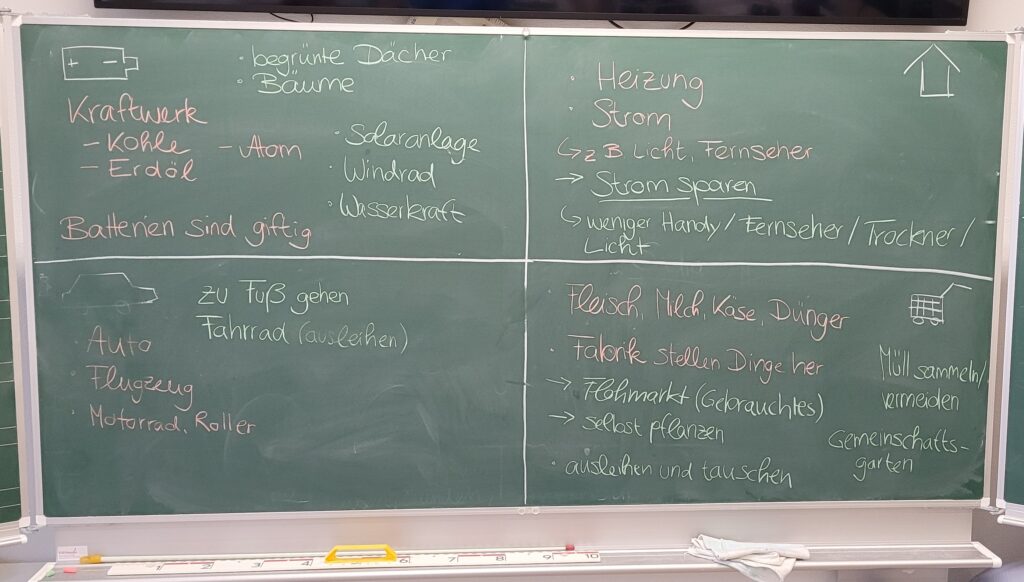 + -
• begrünte Dächer
• Bäume
Kraftwerk
- Kohle - Atom
- Erdöl
• Solaranlage
• Windrad
• Wasserkraft
Batterien sind giftig
• Heizung
• Strom
↳ z B Licht, Fernseher
→ Strom sparen
↳ weniger Handy / Fernseher / Trockner /
Licht
zu Fuß gehen
Fahrrad (ausleihen)
• Auto
• Flugzeug
• Motorrad, Roller
Fleisch, Milch, Käse, Dünger
• Fabrik stellen Dinge her
→ Flohmarkt (Gebrauchtes)
→ selbst pflanzen
• ausleihen und tauschen
Müll sammeln/
vermeiden
Gemeinschafts-
garten
1 2 3 4 5 6 7 8 9 10